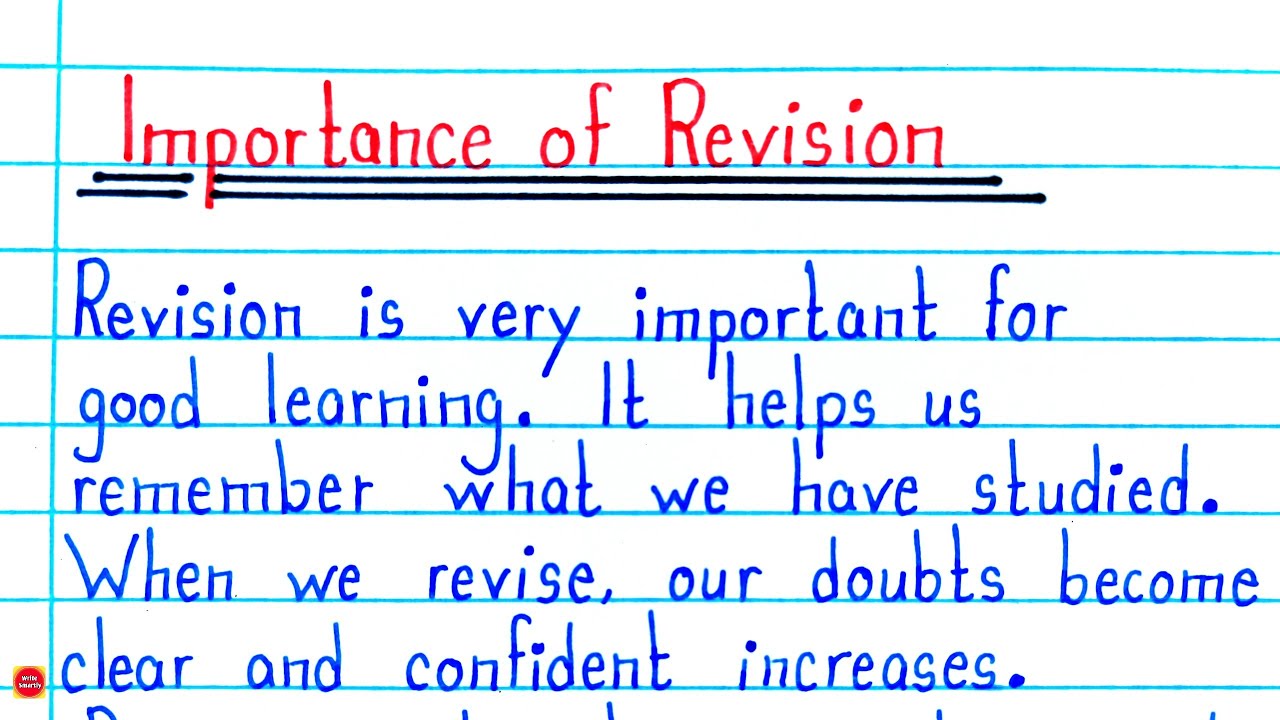 Importance of Revision
Revision is very important for
good learning. It helps us
remember what we have studied.
When we revise, our doubts become
clear and confident increases.
Write
Smartly